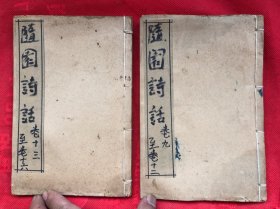 隨園詩話
卷十三
至卷十六
隨園詩話
卷九
至卷十二